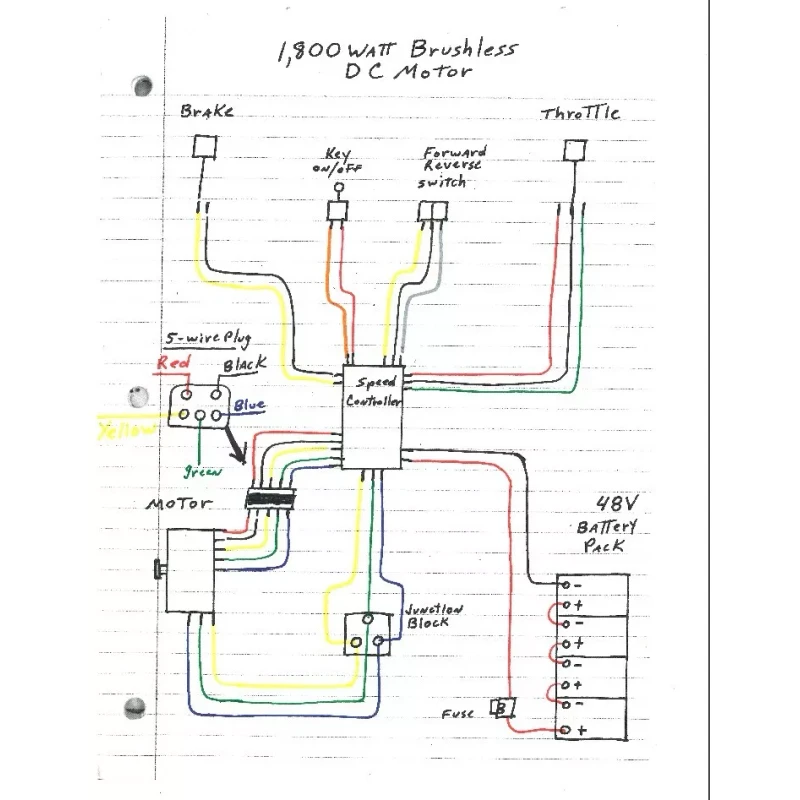 1,800 WATT Brushless
DC Motor
Brake
Throttle
Key
ON/OFF
Forward
Reverse
switch
5-wire Plug
Red
Black
Blue
Yellow
green
Speed
Controller
Motor
48V
Battery
Pack
Junction
Block
Fuse
B
-
+
-
+
-
+
-
+